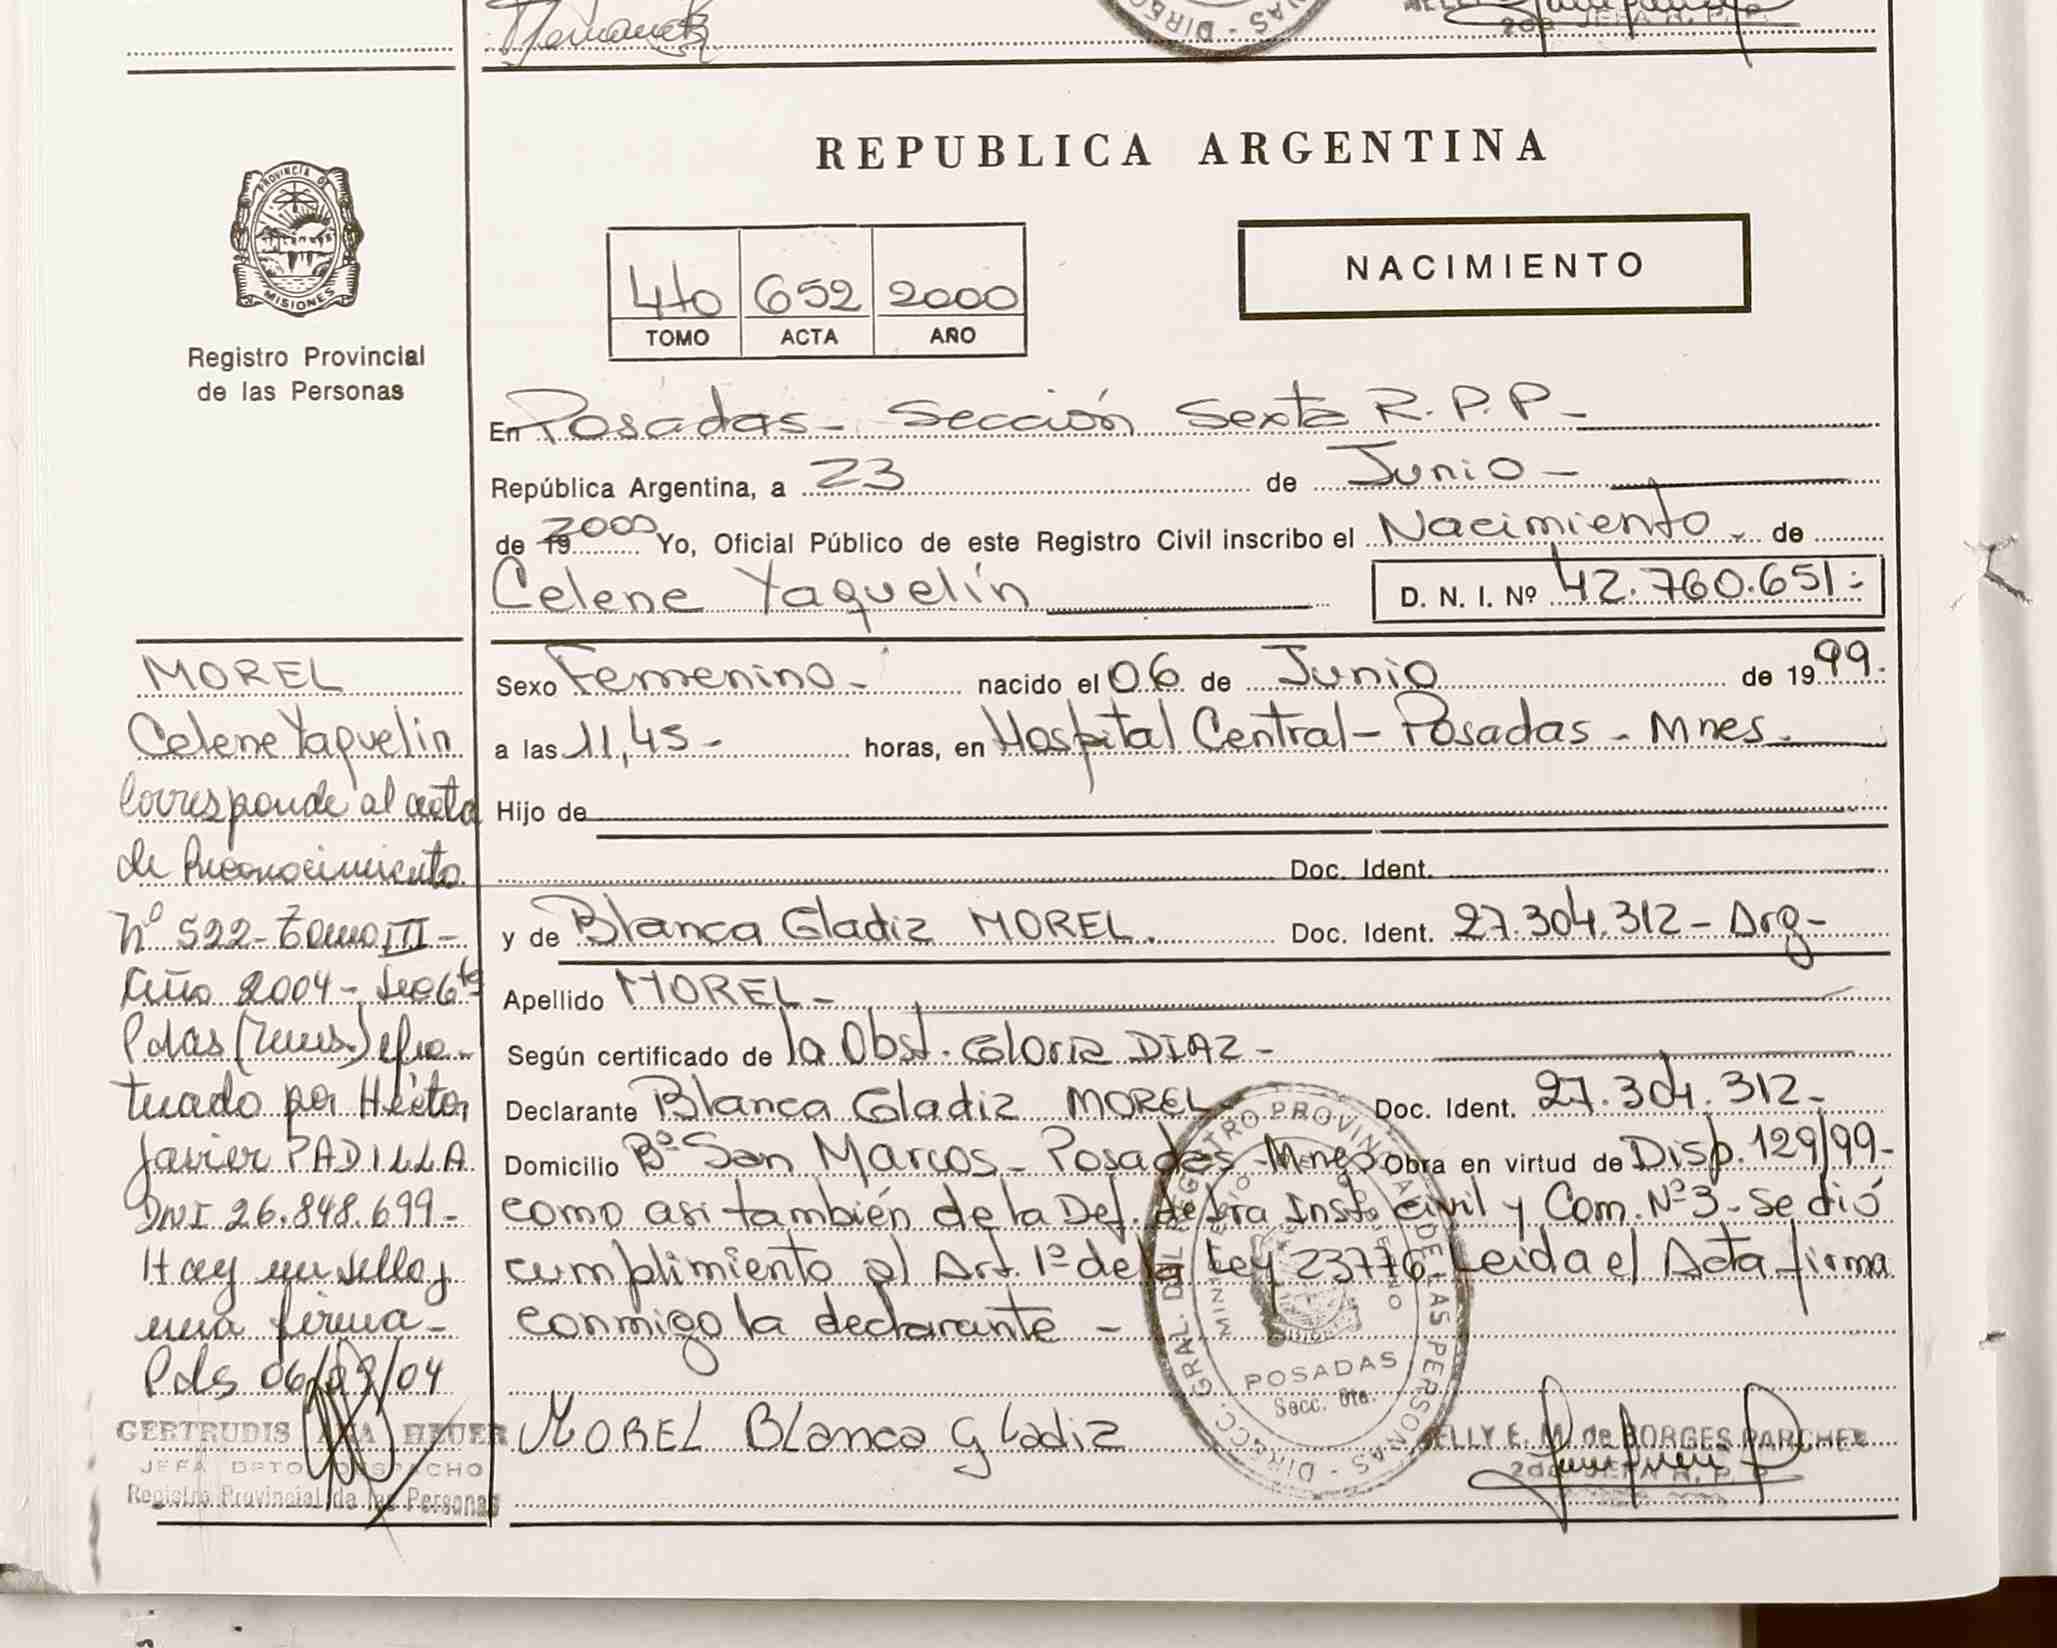 REPUBLICA ARGENTINA
PROVINCIA DE
MISIONES
Registro Provincial
de las Personas
4to 652 2000
TOMO ACTA AÑO
NACIMIENTO
En Posadas - Sección Sexta R.P.P -
República Argentina, a 23 de Junio -
de 19 2000 Yo, Oficial Público de este Registro Civil inscribo el Nacimiento - de
Celene Yaquelín D. N. I. Nº 42.760.651-
Sexo Femenino - nacido el 06 de Junio de 1999.
a las 11,45 - horas, en Hospital Central - Posadas - Mnes -
Hijo de
Doc. Ident.
y de Blanca Gladiz MOREL. Doc. Ident. 27.304.312 - Arg -
Apellido MOREL -
Según certificado de la Obst. Gloria DIAZ -
Declarante Blanca Gladiz MOREL - Doc. Ident. 27.304.312 -
Domicilio Bº San Marcos - Posadas - Mnes Obra en virtud de Disp. 129/99 -
como asi también de la Def. de 1ra Inst. Civil y Com. Nº 3 - Se dió
cumplimiento al Art. 1º de la Ley 23776 - Leida el Acta firma
conmigo la declarante -
MOREL Blanca Gladiz
POSADAS
Secc. 6ta.
NELLY E. M. de BORGES PARCHEZ
2da JEFA R. P. P.
MOREL
Celene Yaquelin
Corresponde al acta
de Reconocimiento
Nº 522 - Tomo III -
Año 2004 - Sec 6ta
Pdas (Mnes.) efec-
tuado por Héctor
Javier PADILLA
DNI 26.848.699 -
Hay un sello y
una firma -
Pds 06/09/04
GERTRUDIS ANA HEUER
JEFA DPTO DESPACHO
Registro Provincial de las Personas